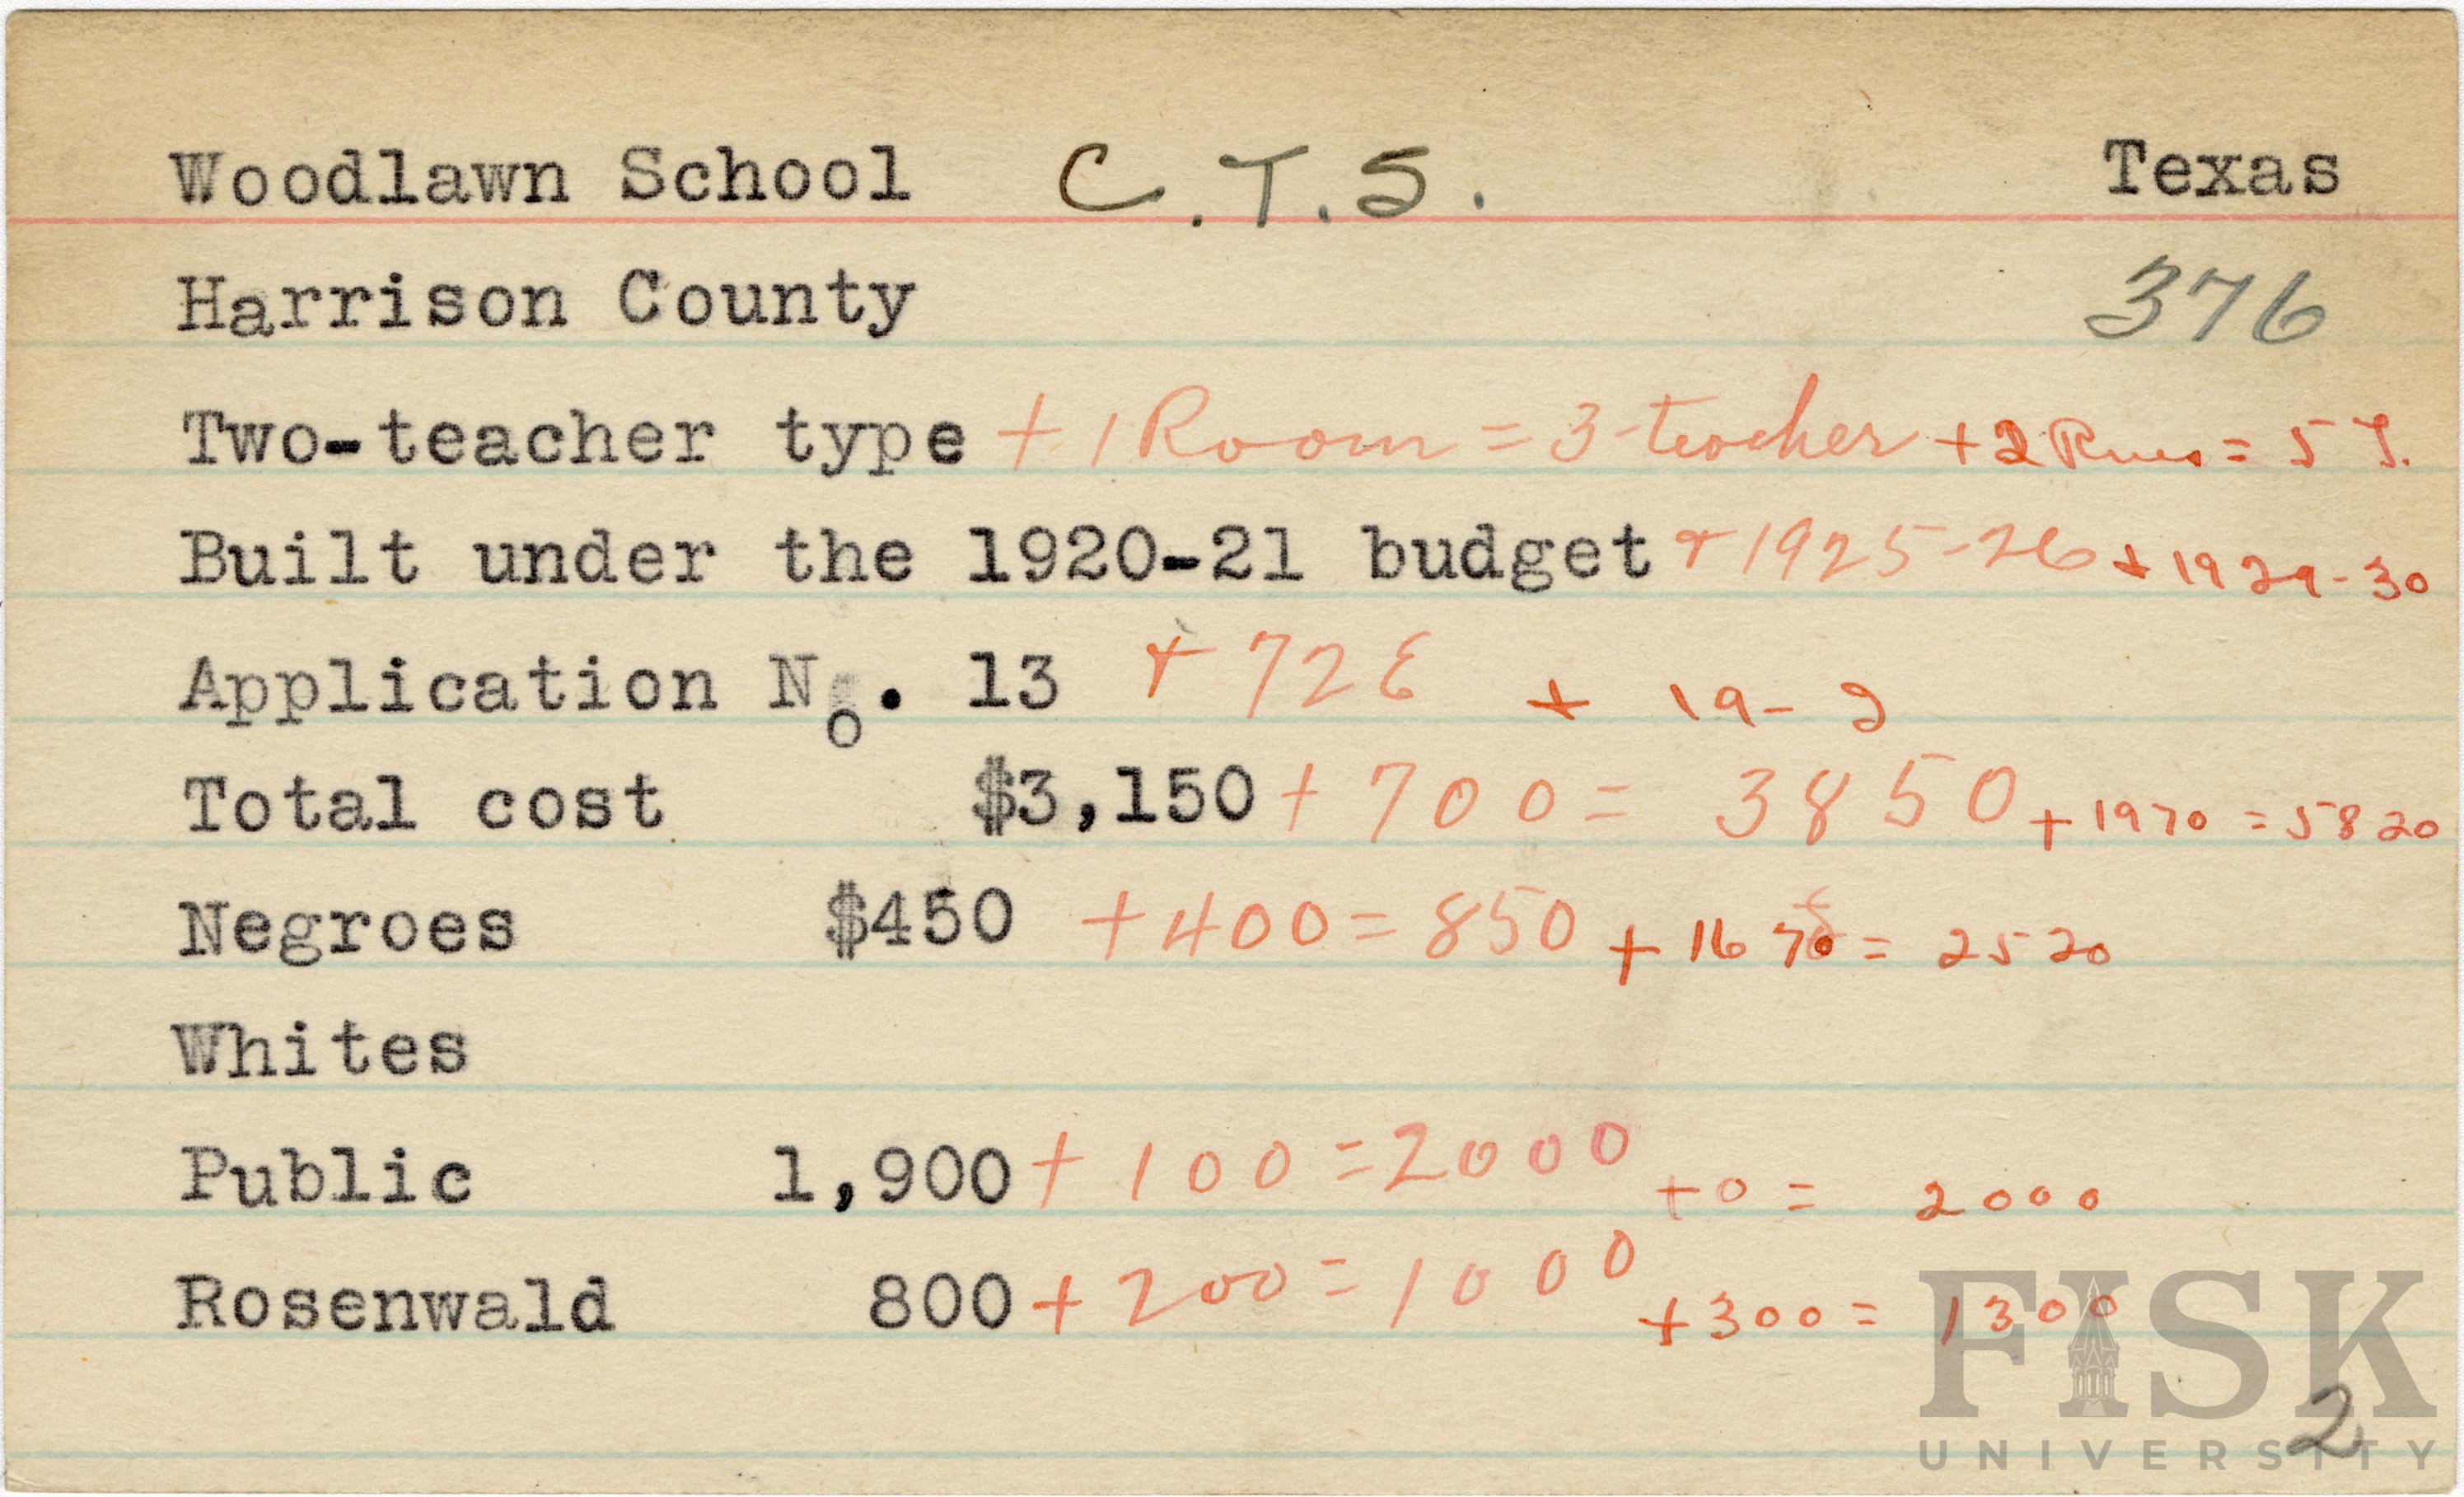 Woodlawn School C.T.S. Texas
Harrison County 376
Two-teacher type + 1 Room = 3-teacher + 2 Rms = 5 T.
Built under the 1920-21 budget + 1925-26 + 1929-30
Application No. 13 + 72E + 19-2
Total cost $3,150 + 700 = 3850 + 1970 = 5820
Negroes $450 + 400 = 850 + 1670 = 2520
Whites
Public 1,900 + 100 = 2000 + 0 = 2000
Rosenwald 800 + 200 = 1000 + 300 = 1300
FISK
UNIVERSITY
2